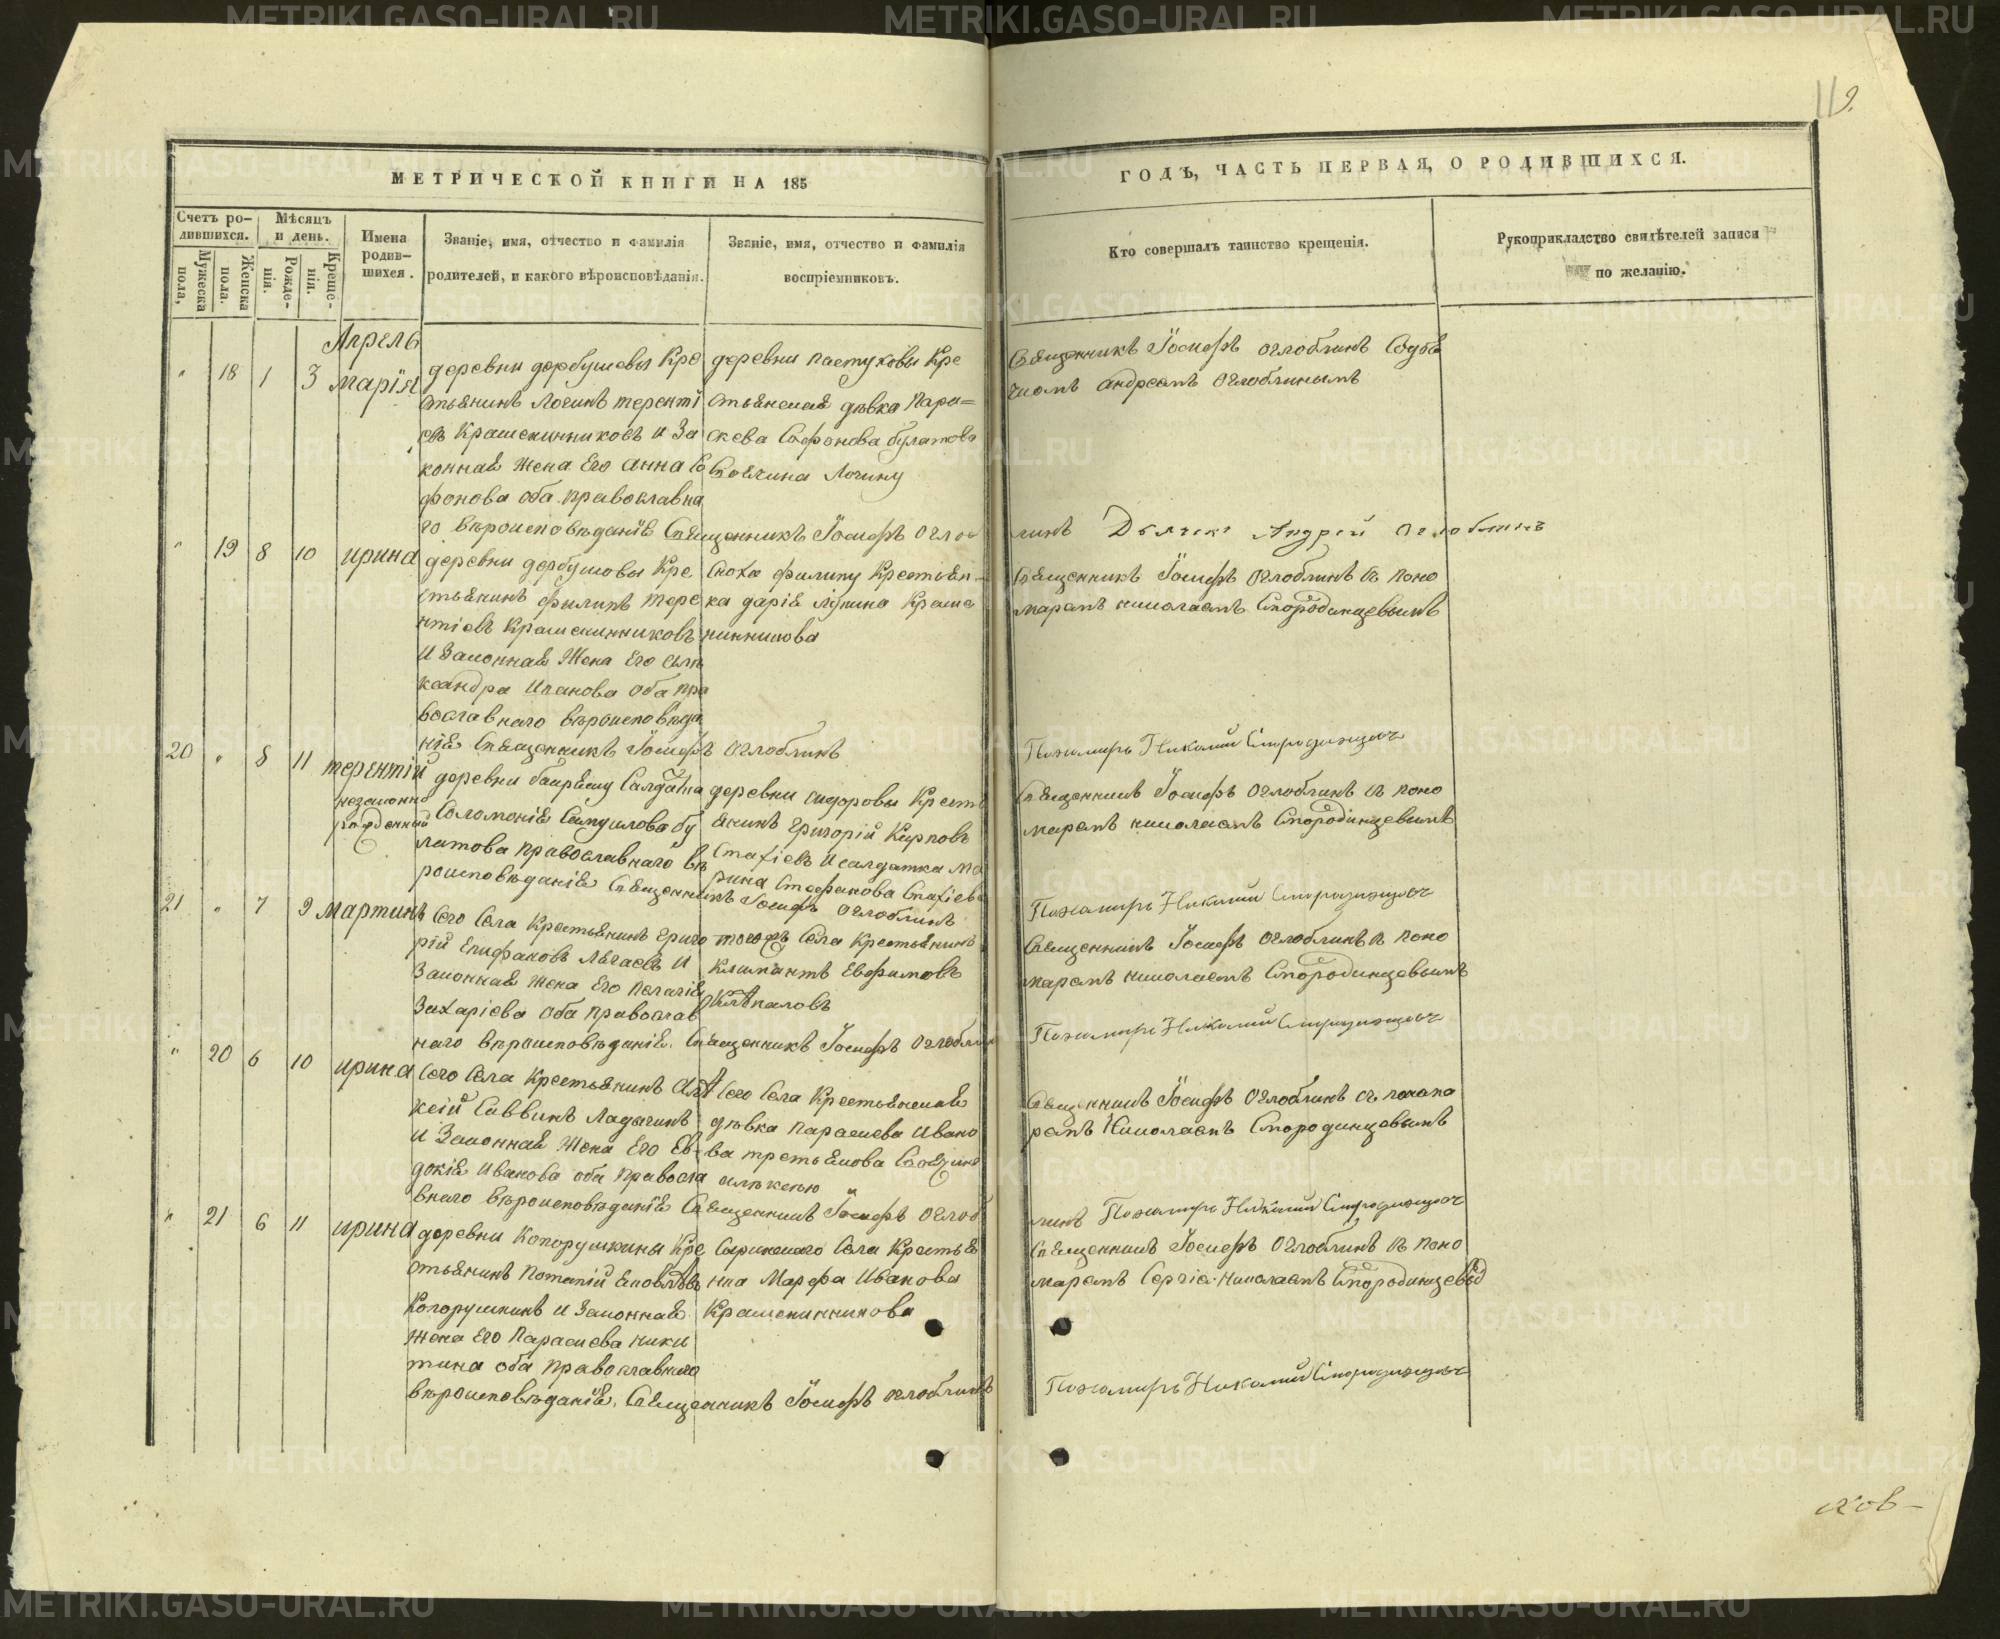 119.
МЕТРИЧЕСКОЙ КНИГИ НА 185
ГОДЪ, ЧАСТЬ ПЕРВАЯ, О РОДИВШИХСЯ.
Счетъ ро-
дившихся.
Мужеска
пола,
Женска
пола.
Мѣсяцъ
и день.
Рожде-
нія.
Креще-
нія.
Имена
родив-
шихся.
Званіе, имя, отчество и фамилія
родителей, и какого вѣроисповѣданія.
Званіе, имя, отчество и фамилія
воспріемниковъ.
Кто совершалъ таинство крещенія.
Рукоприкладство свидѣтелей записи
по желанію.
Апрель
" 18 1 3 Марія
деревни дербушевы Кре
стьянинъ Логинъ теренті
евъ Крашенинниковъ и За
конная жена Его анна Со
фонова оба православна
го вѣроисповѣданія Священникъ Іосифъ Огло
деревни пастуховы Кре
стьянская дѣвка Пара=
скева Софонова булатова
Своячина Логину
Священникъ Іосифъ оглоблинъ Содья
чкомъ андреемъ Оглоблинымъ
линъ Дьячекъ Андрей Оглоблинъ
" 19 8 10 ирина
деревни дербушовы Кре
стьянинъ филипъ тере
нтіевъ Крашенинниковъ
И Законная Жена Его але
ксандра Иванова оба пра
вославнаго вѣроисповѣда
нія Священникъ Іосифъ Оглоблинъ
Сноха филипу Крестьян-
ка дарія Крашe
нинникова
Священникъ Іосифъ Оглоблинъ съ поно
маремъ николаемъ Смородинцевымъ
Пономарь Николай Смородинцовъ
20 " 8 11 терентій
незаконно
рожденный
деревни Салдатка
Соломонія Самуилова бу
латова православнаго вѣ
роисповѣданія Священникъ Іосифъ Оглоблинъ
деревни сидоровы Кресть
янинъ григорій Карповъ
Стахіевъ И салдатка Ма
рина Стефанова Стахіева
Священникъ Іосифъ Оглоблинъ съ поно
маремъ николаемъ Смородинцевымъ
Пономарь Николай Смородинцовъ
21 " 7 9 Мартинъ
Сего Села Крестьянинъ григо
рій Епифановъ И
Законная жена Его пелагія
Захаріева оба православ
наго вѣроисповѣданія. Священникъ Іосифъ Оглоблин
тогожъ Села Крестьянинъ
Климантъ Евфимовъ
Священникъ Іосифъ Оглоблинъ съ поно
маремъ николаемъ Смородинцевымъ
Пономарь Николай Смородинцовъ
" 20 6 10 ирина
Сего Села Крестьянинъ Але
ксій Саввинъ Ладыгинъ
и Законная Жена Его Ев-
докія Иванова оба правосла
внаго вѣроисповѣданія Священникъ Іосифъ Оглоб
Сего Села Крестьянская
дѣвка параскева Ивано
ва третьякова Своячина
алексею
Священникъ Іосифъ Оглоблинъ съ понома
ремъ Николаемъ Смородинцовымъ
линъ Пономарь Николай Смородинцовъ
" 21 6 11 ирина
деревни Копорушкины Кре
стьянинъ потапій Яковлевъ
Копорушкинъ и Законная
жена Его Параскева ники
тина оба православнаго
вѣроисповѣданія. Священникъ Іосифъ оглоблинъ
Села Крестья
нка Марфа Иванова
Крашенинникова
Священникъ Іосифъ Оглоблинъ съ поно
маремъ николаемъ Смородинцевы
Пономарь Николай Смородинцовъ
METRIKI.GASO-URAL.RU